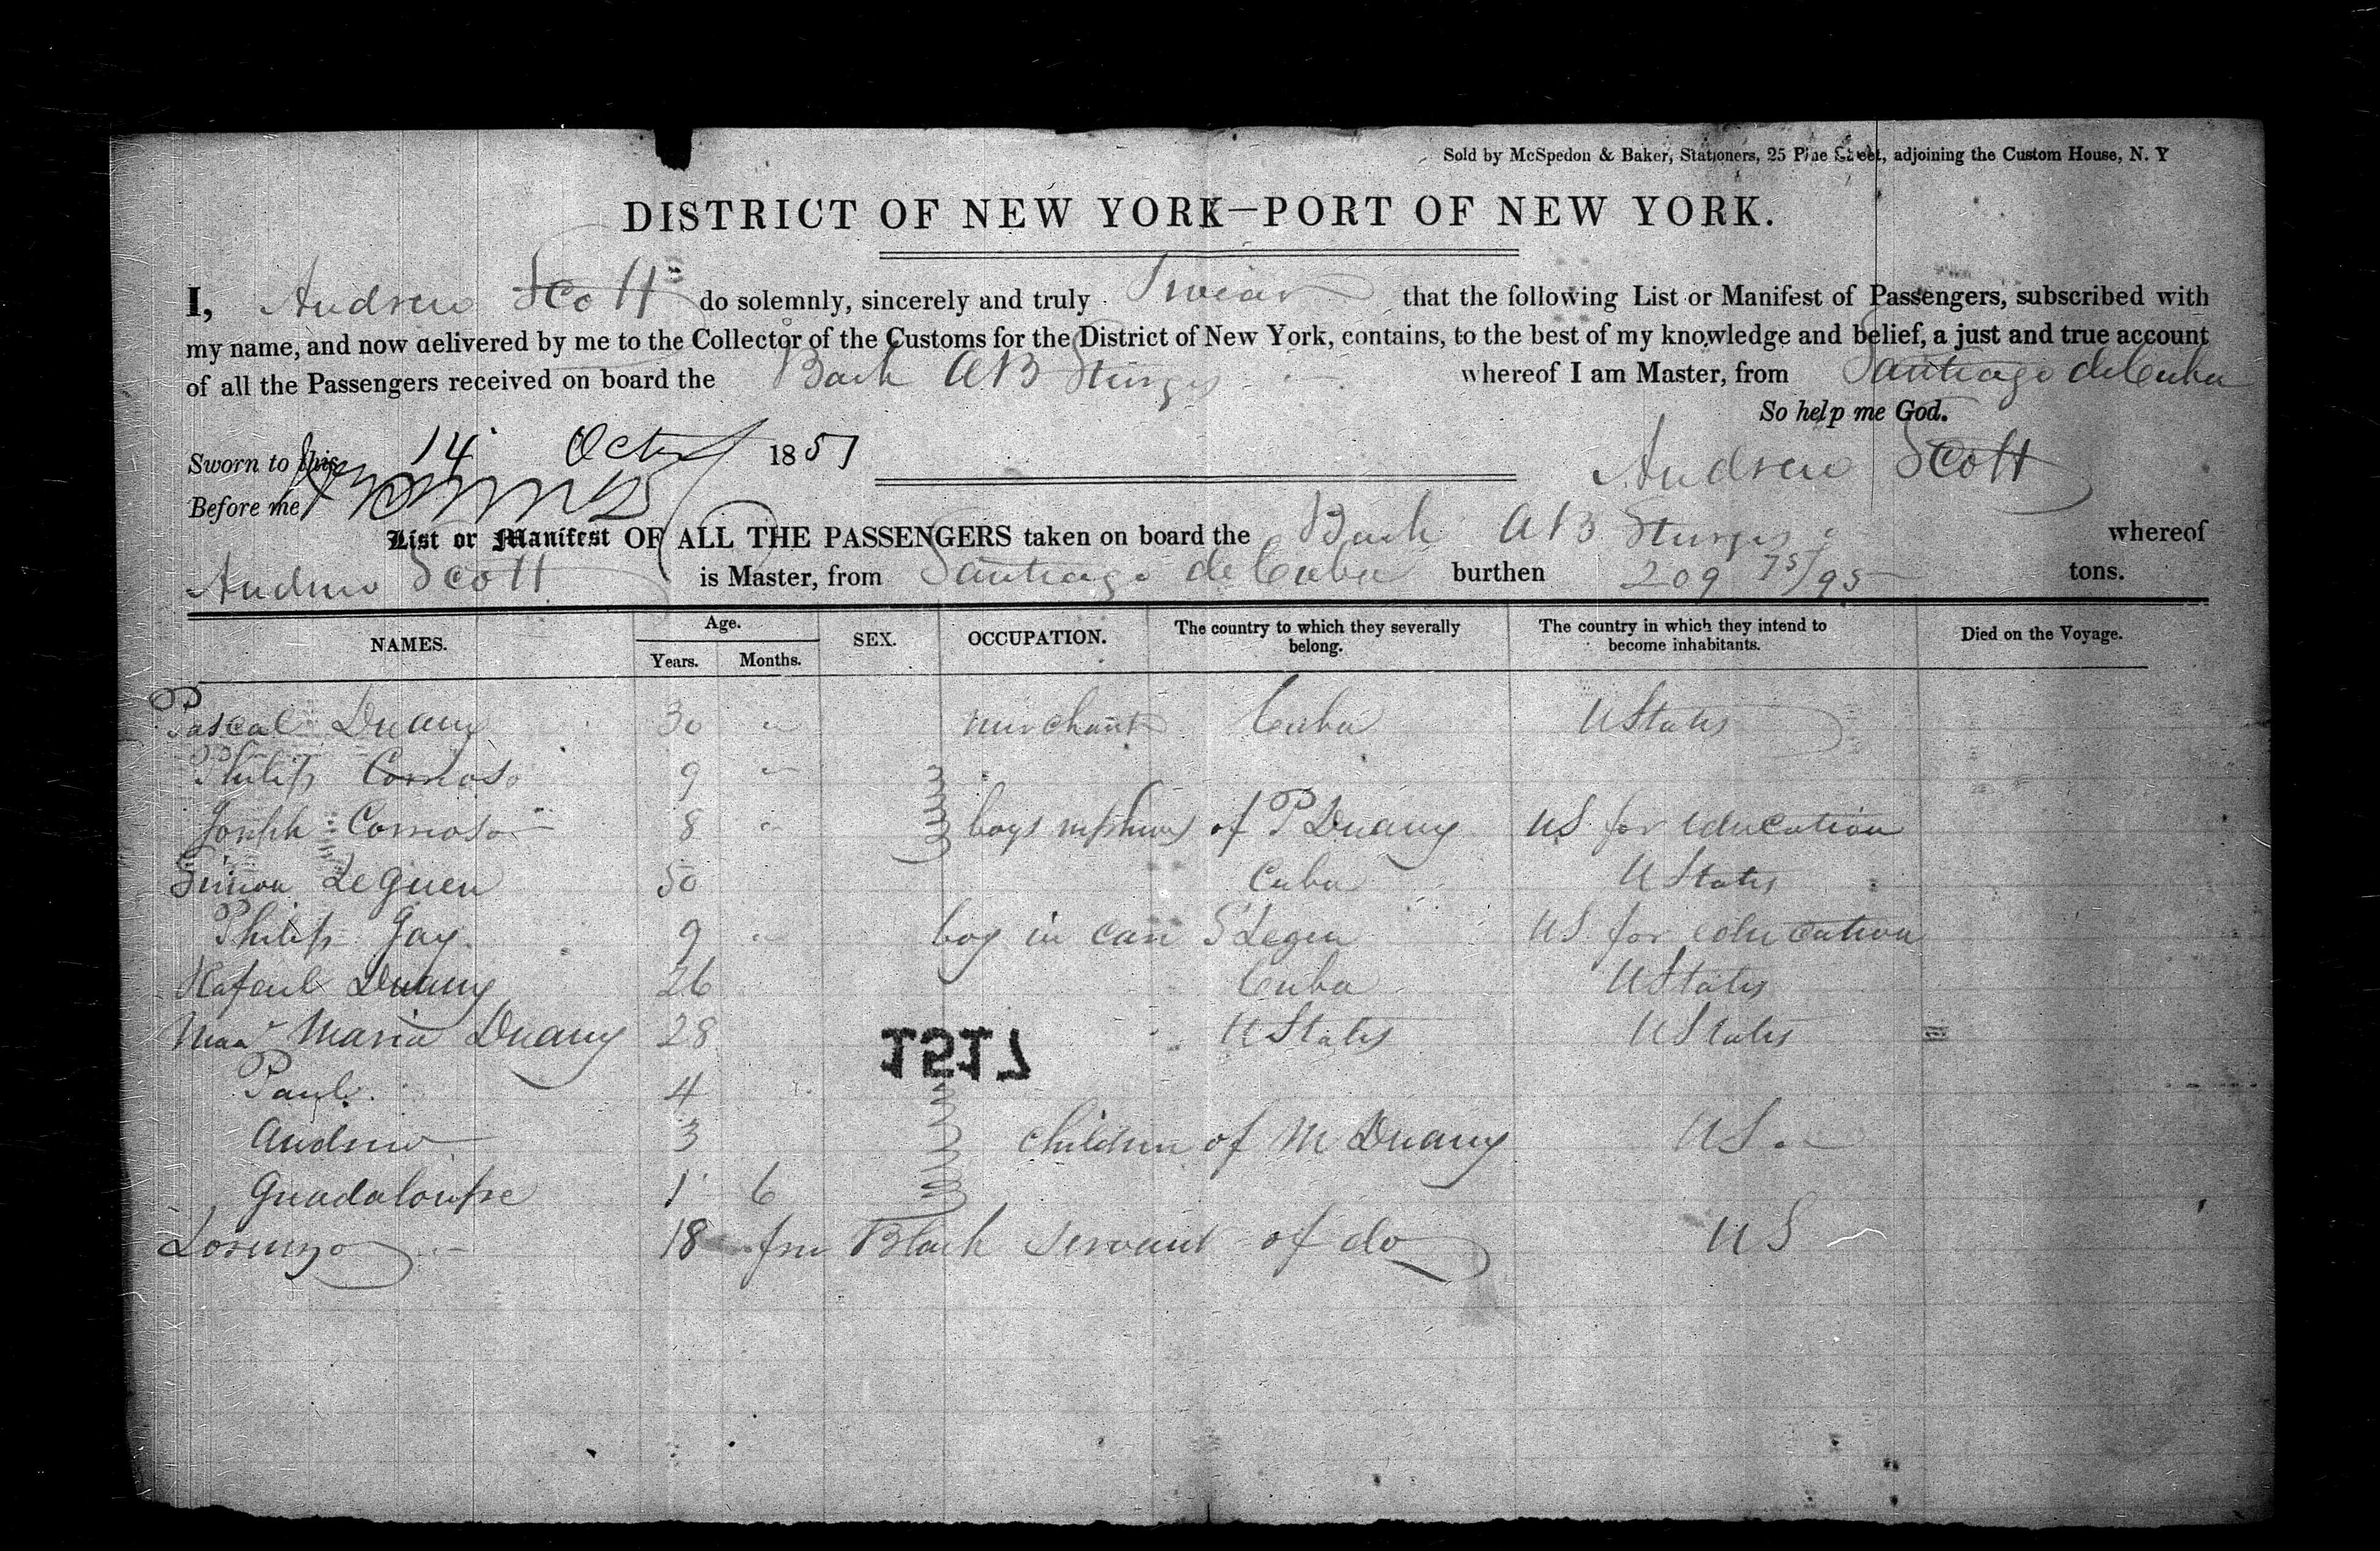 Sold by McSpedon & Baker, Stationers, 25 Pine Street, adjoining the Custom House, N. Y
DISTRICT OF NEW YORK—PORT OF NEW YORK.
I, Andrew Scott do solemnly, sincerely and truly Swear that the following List or Manifest of Passengers, subscribed with
my name, and now delivered by me to the Collector of the Customs for the District of New York, contains, to the best of my knowledge and belief, a just and true account
of all the Passengers received on board the Bark AB Sturges whereof I am Master, from Santiago de Cuba
So help me God.
Sworn to this 14 Octr 1851
Andrew Scott
Before me
List or Manifest OF ALL THE PASSENGERS taken on board the Bark AB Sturges whereof
Andrew Scott is Master, from Santiago de Cuba burthen 209 75/95 tons.
NAMES. Age. Years. Months. SEX. OCCUPATION. The country to which they severally belong. The country in which they intend to become inhabitants. Died on the Voyage.
Pascal Duany 30 " merchant Cuba U States
Philip 9 "
Joseph 8 " boys nephews of P Duany US for education
Simon Le Guen 50 Cuba U States
Philip Gay 9 " boy in care S Leguen US for education
Rafael Duany 26 Cuba U States
Maria Duany 28 U States U States
1517
Paul 4
Andrew 3 children of M Duany US
Guadaloupe 1 6
Lorenzo 18 free Black servant of do US